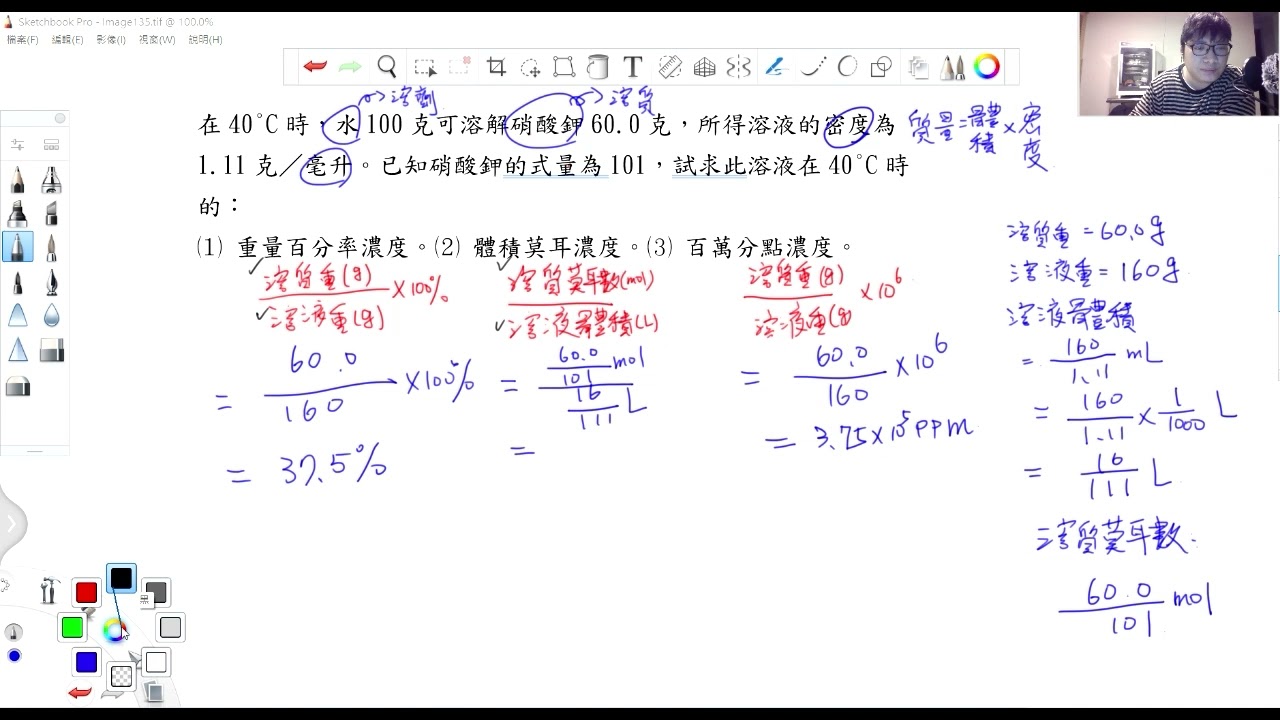 Sketchbook Pro - Image135.tif @ 100.0%
檔案(F) 編輯(E) 影像(I) 視窗(W) 說明(H)
T
→溶劑 →溶質
在 40°C 時，水 100 克可溶解硝酸鉀 60.0 克，所得溶液的密度為
1.11 克／毫升。已知硝酸鉀的式量為 101，試求此溶液在 40°C 時
的：
(1) 重量百分率濃度。(2) 體積莫耳濃度。(3) 百萬分點濃度。
質量=體積×密度
溶質重(g)
溶液重(g)
×100%
= 60.0
160
×100%
= 37.5%
溶質莫耳數(mol)
溶液體積(L)
= 60.0
101
mol
16
111
L
=
溶質重(g)
溶液重(g
×10⁶
= 60.0
160
×10⁶
= 3.75×10⁵ ppm
溶質重=60.0g
溶液重=160g
溶液體積
= 160
1.11
mL
= 160
1.11
× 1
1000
L
= 16
111
L
溶質莫耳數:
60.0
101
mol